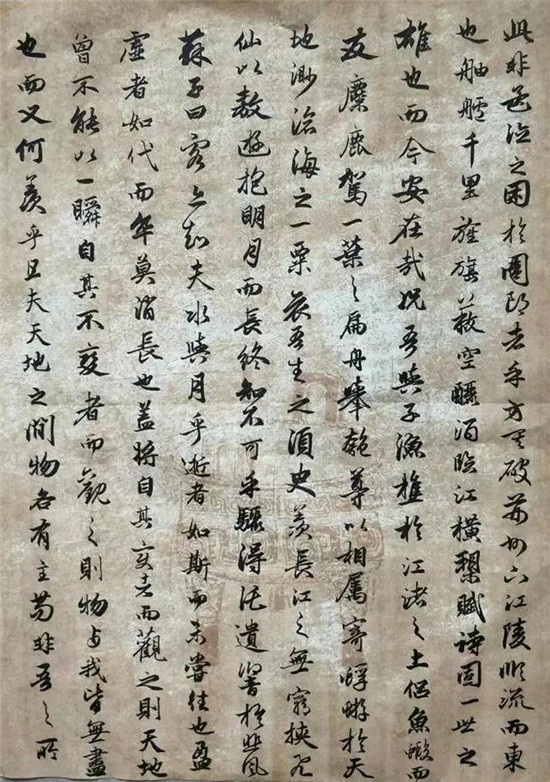 此非孟德之困於周郎者乎方其破荊州下江陵順流而東
也舳艫千里旌旗蔽空釃酒臨江橫槊賦詩固一世之
雄也而今安在哉況吾與子漁樵於江渚之上侶魚蝦而
友麋鹿駕一葉之扁舟舉匏尊以相屬寄蜉蝣於天
地渺滄海之一粟哀吾生之須臾羨長江之無窮挾飛
仙以遨遊抱明月而長終知不可乎驟得託遺響於悲風
蘇子曰客亦知夫水與月乎逝者如斯而未嘗往也盈
虛者如代而卒莫消長也蓋將自其變者而觀之則天地
曾不能以一瞬自其不變者而觀之則物与我皆無盡
也而又何羨乎且夫天地之間物各有主苟非吾之所